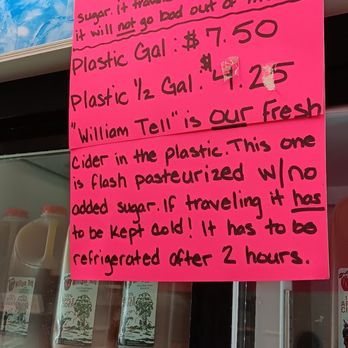 sugar. it trave
it will not go bad out of
Plastic Gal: $7.50
Plastic ½ Gal. $4.25
"William Tell" is our fresh
Cider in the plastic. This one
is flash pasteurized w/no
added sugar. If traveling it has
to be kept cold! It has to be
refrigerated after 2 hours.
William Tell